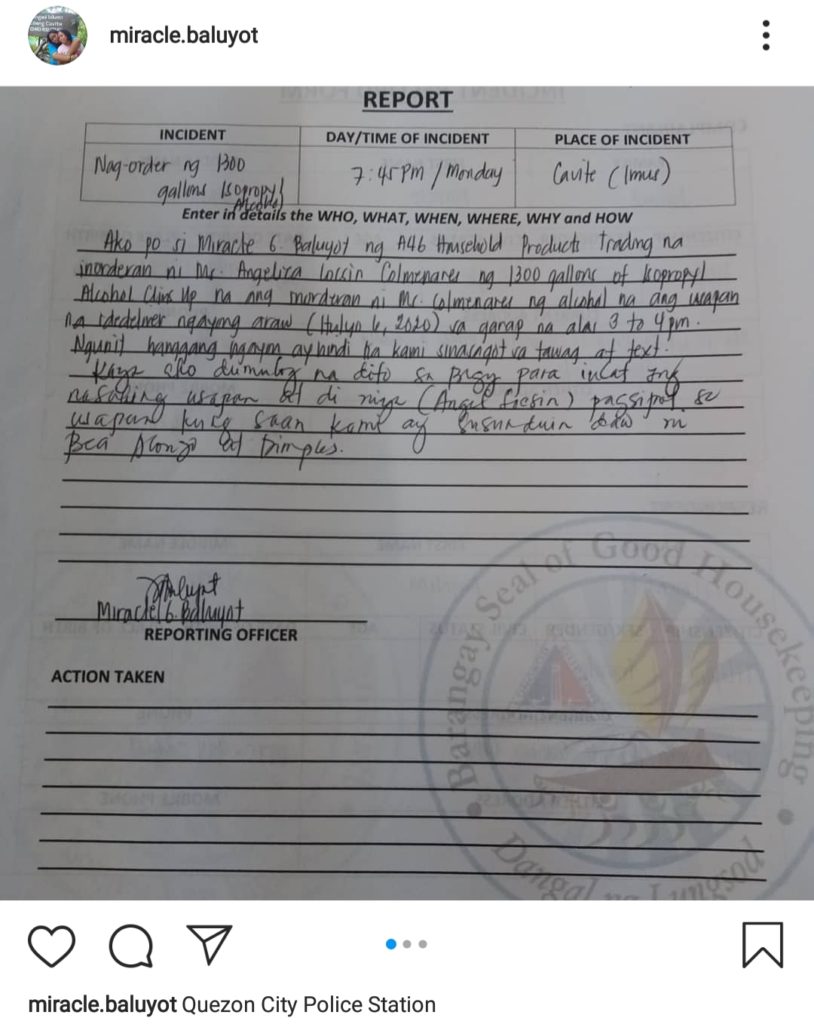 miracle.baluyot
REPORT
INCIDENT
DAY/TIME OF INCIDENT
PLACE OF INCIDENT
Nag-order ng 1300
gallons Isopropyl
Alcohol
7:45 PM / Monday
Cavite (Imus)
Enter in details the WHO, WHAT, WHEN, WHERE, WHY and HOW
Ako po si Miracle G. Baluyot ng A46 Household Products Trading na
inorderan ni Ms. Angelica Locsin Colmenares ng 1300 gallons of Isopropyl
Alcohol Up na ang inorderan ni Ms. Colmenares ng alcohol na ang usapan
na idedeliver ngayong araw (Hulyo 6, 2020) sa ganap na alas 3 to 4pm.
Ngunit hanggang ngayon ay hindi pa kami sinasagot sa tawag at text.
Kaya ako dumulog na dito sa Brgy para iulat ang
nasabing usapan at di niya (Angel Locsin) pagsipot sa
usapan kung saan kami ay susunduin daw ni
Bea Alonzo at Dimples.
Miracle G. Baluyot
REPORTING OFFICER
ACTION TAKEN
Barangay Seal of Good Housekeeping
Dangal ng Lungsod
miracle.baluyot Quezon City Police Station